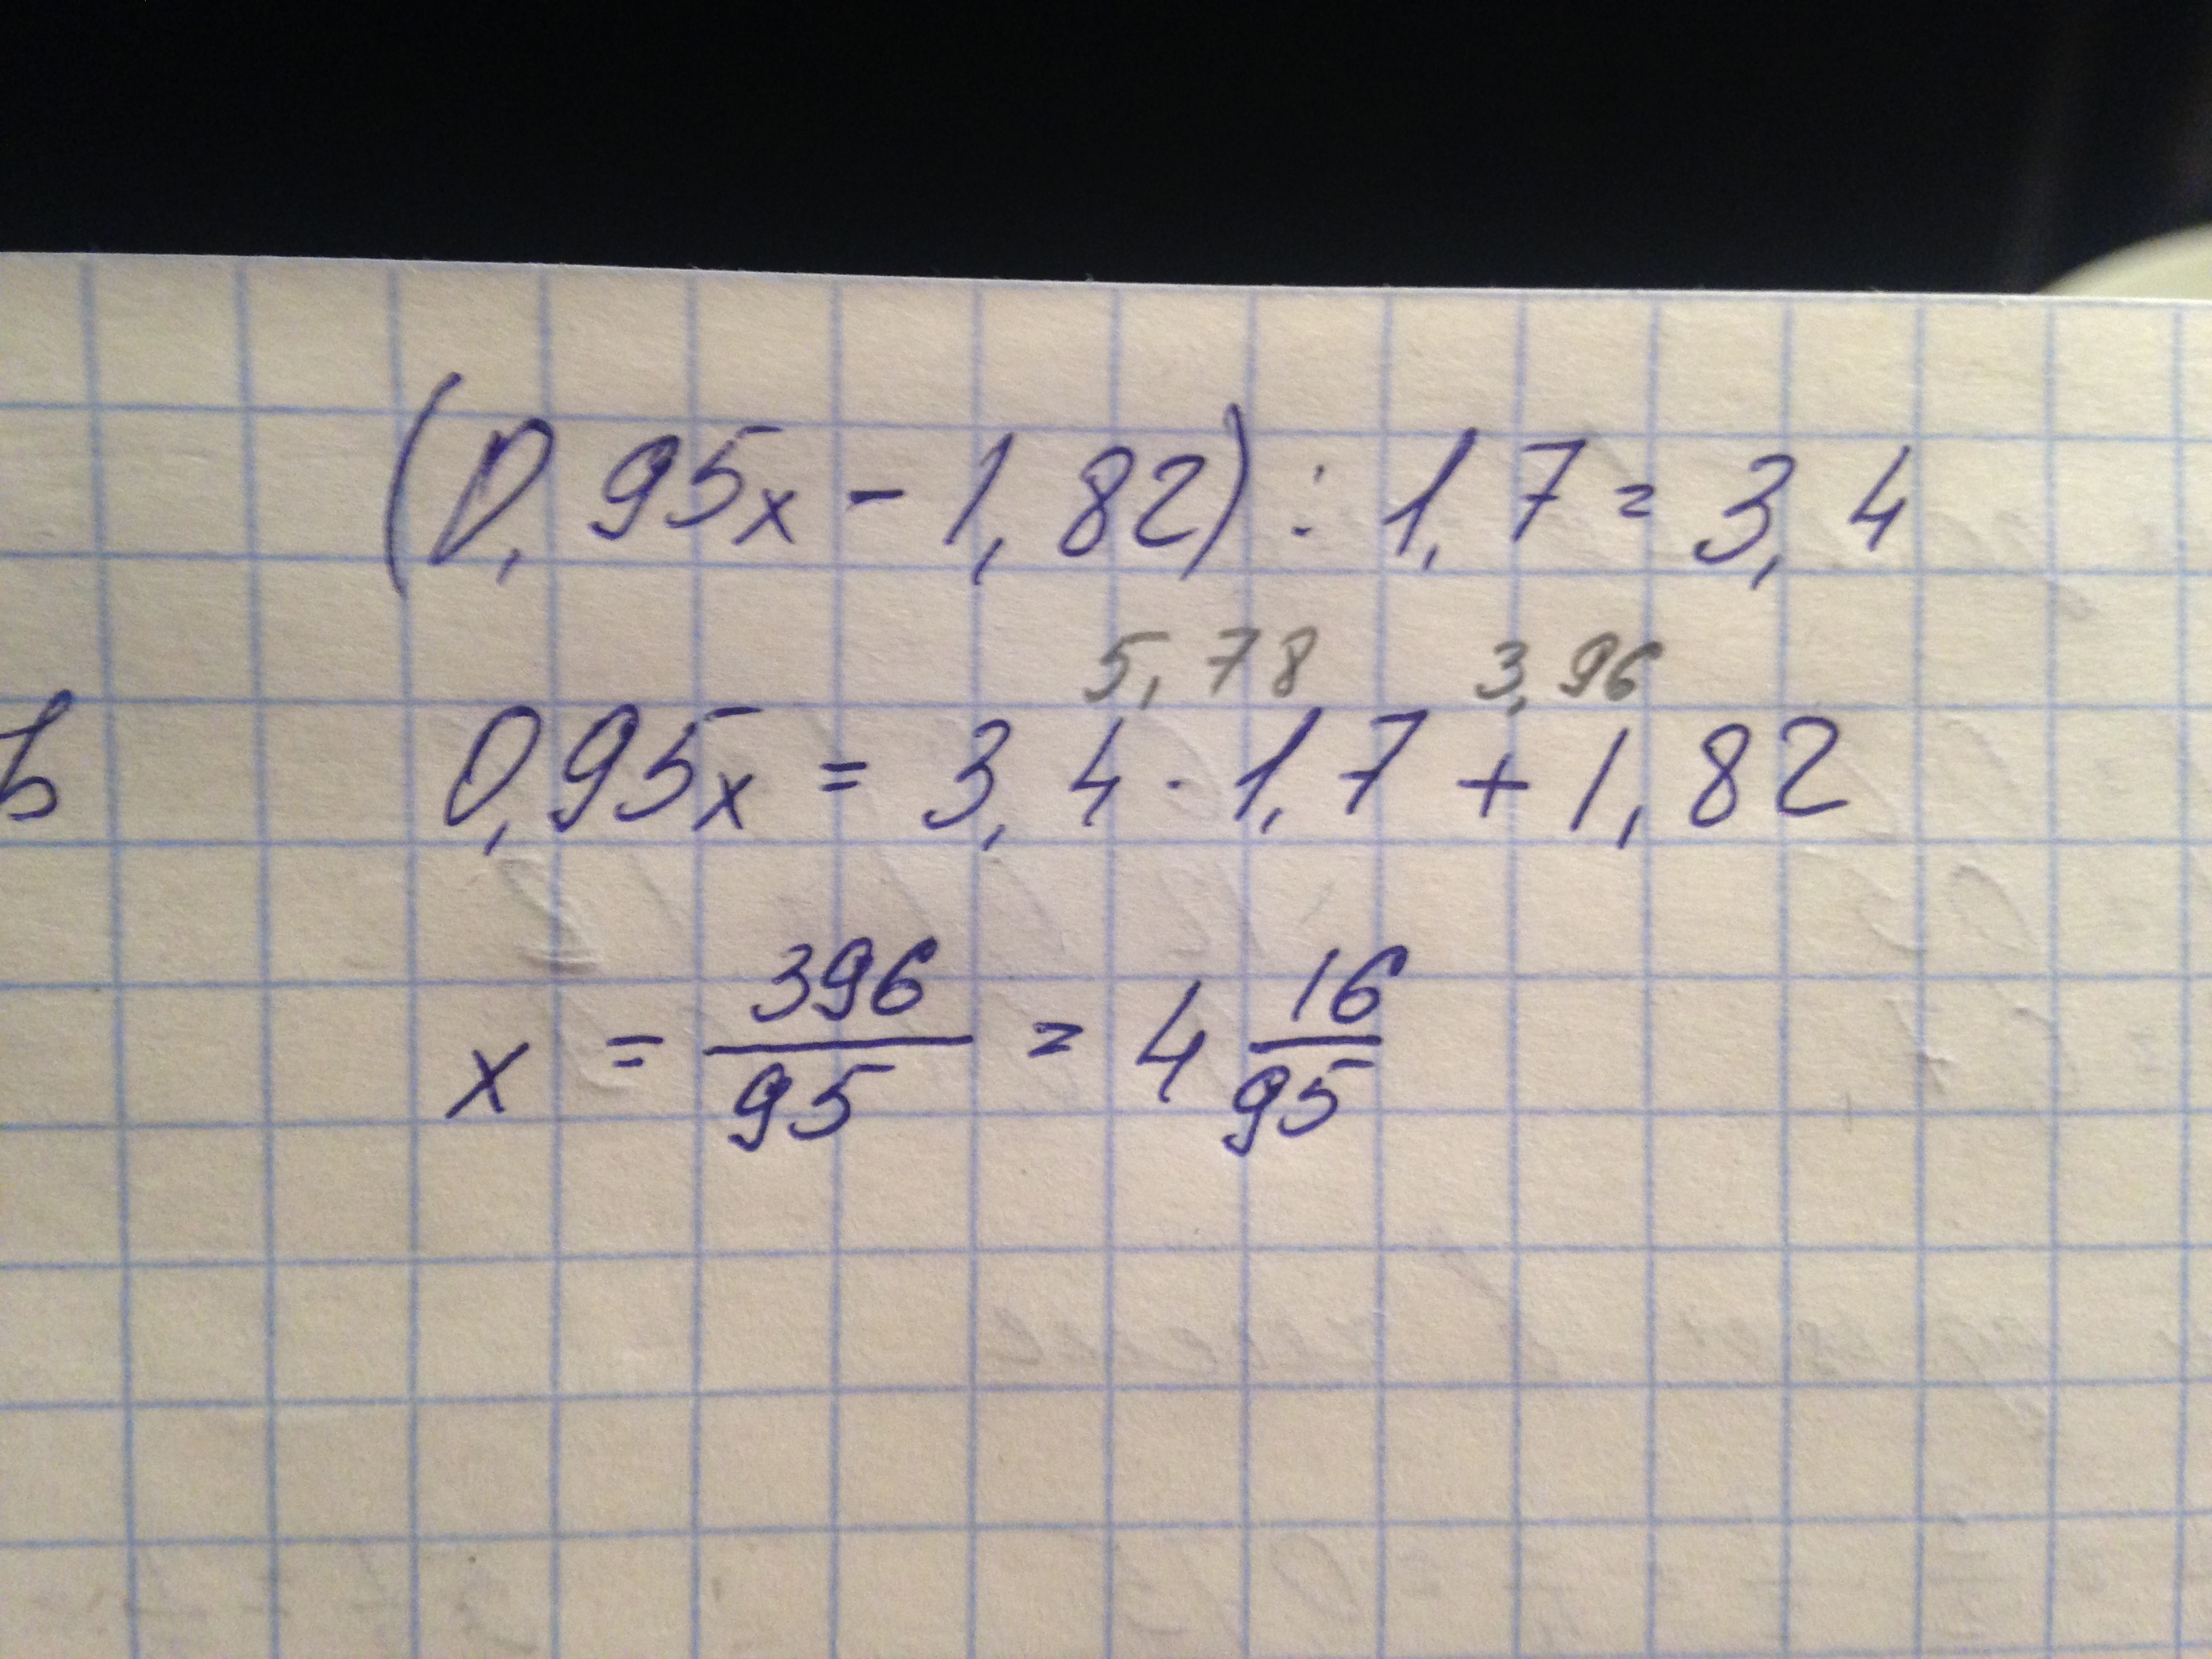 (0,95x - 1,82) : 1,7 = 3,4
5,78 3,96
ь 0,95x = 3,4 · 1,7 + 1,82
x = 396/95 = 4 16/95